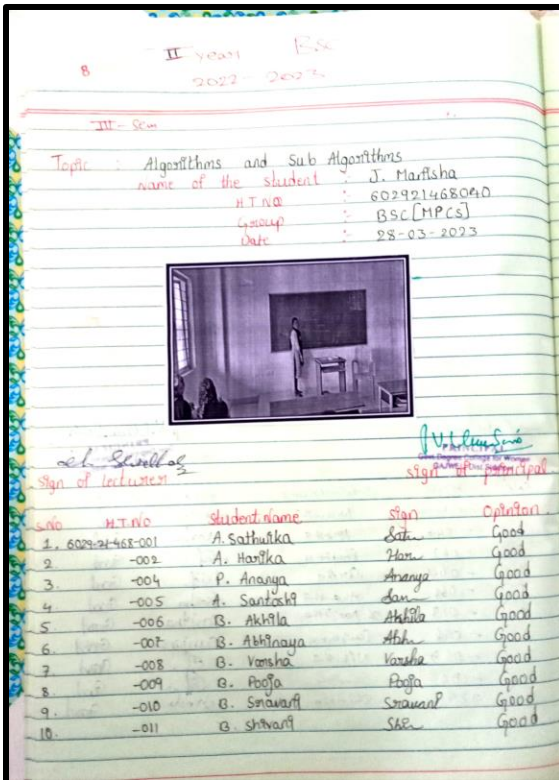 8
II year BSc
2022 - 2023
III - Sem
Topic : Algorithms and Sub Algorithms
name of the student : J. Manisha
H.T.NO : 602921468040
Group : BSC [MPCS]
Date : 28-03-2023
PRINCIPAL
Sign of lecturer sign of principal.
S.No H.T.NO Student Name sign Opinion
1. 6029-21-468-001 A. Sathwika Good
2 -002 A. Harika Good
3. -004 P. Ananya Ananya Good
4 -005 A. Santoshi San Good
5 -006 B. Akhila Akhila Good
6. -007 B. Abhinaya Good
7. -008 B. Varsha Varsha Good
8. -009 B. Pooja Pooja Good
9. -010 B. Sravani Sravani Good
10. -011 B. Shivani Good